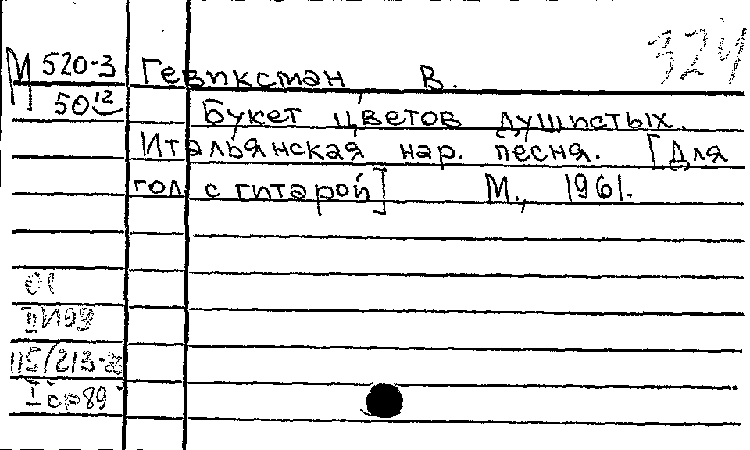 324
М 520-3 Гевиксман, В.
50 12 Букет цветов душистых.
Итальянская нар. песня. [Для
гол с гитарой] М., 1961.
01
II И99
115/213-
I ср89